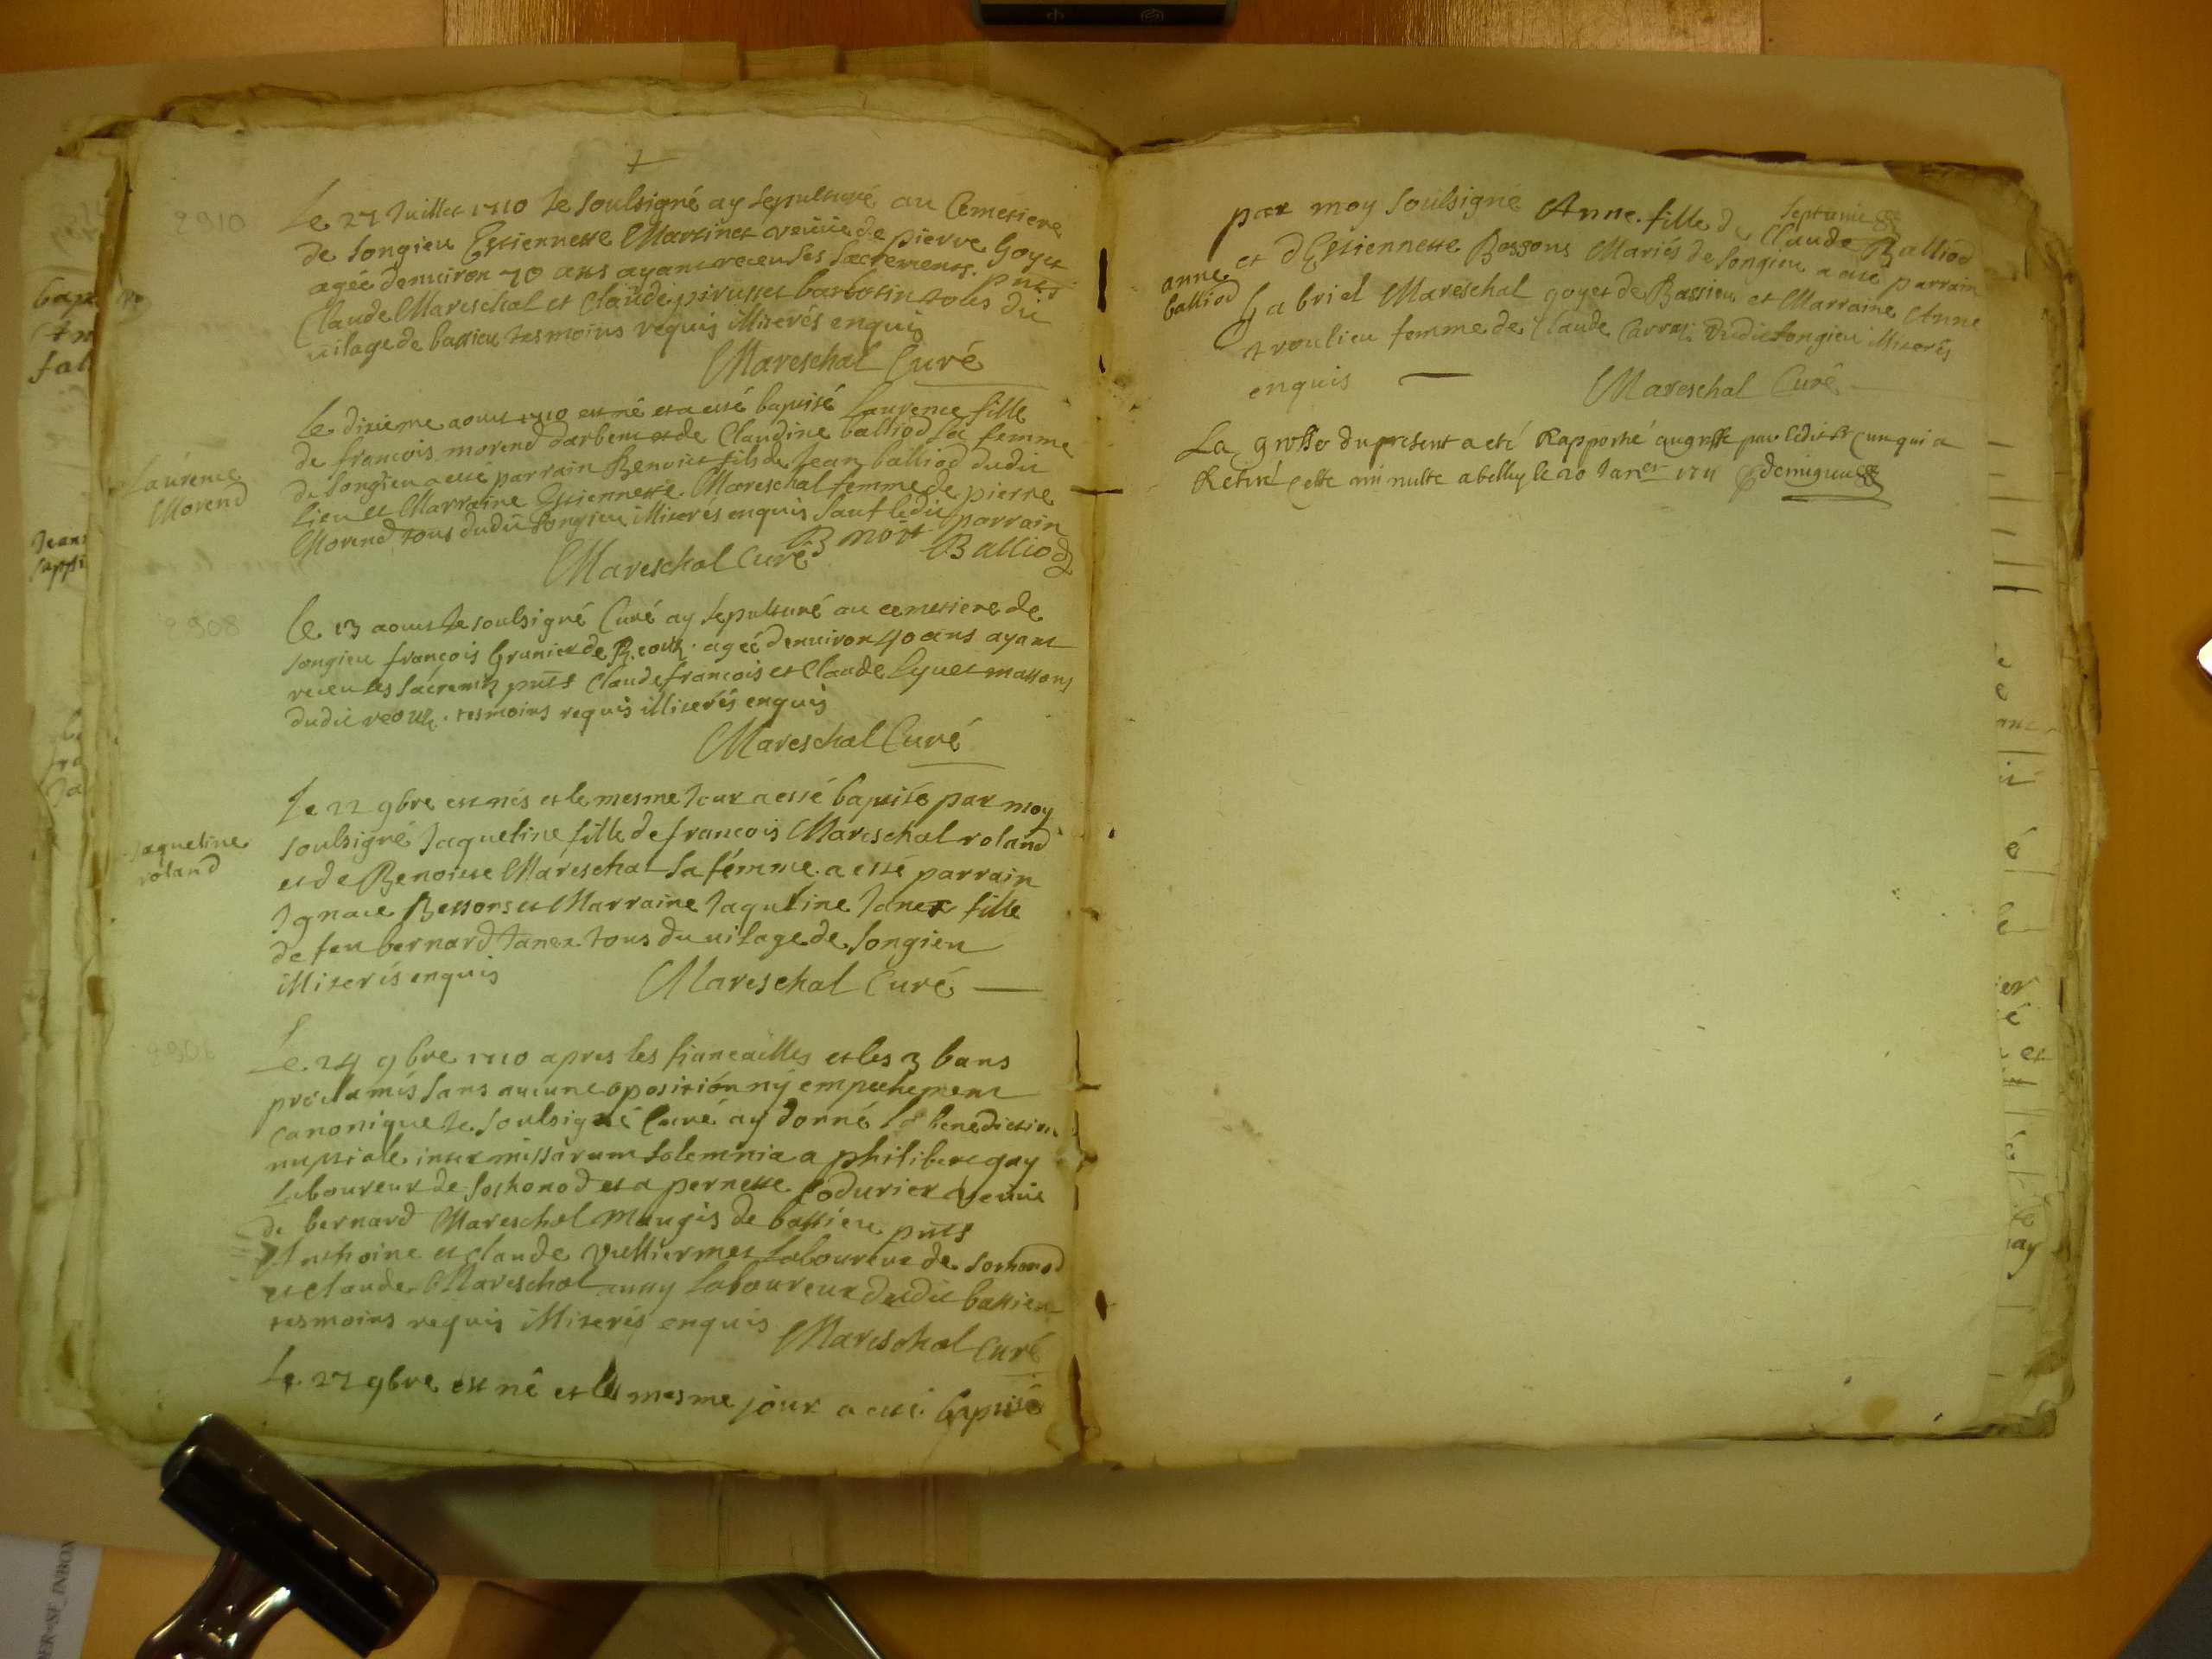 Le 27 Juillet 1710 Je soulsigné ay sepulturé au Cemetiere
de songieu Estiennette Martinet veuve de pierre Goyet
agée denuiron 70 ans ayant receu ses sacrements. pnts
Claude Mareschal et Claude pirusset barbotin tous du
uilage de bassieu tesmoins requis illiterés enquis
Mareschal Curé
2910
Le dixieme aoust 1710 est né et a esté baptisé Laurence fille
de francois morend darbent et de Claudine balliod sa femme
de songieu a esté parrain Benoict fils de Jean balliod dudit
lieu et Marraine Estiennette Mareschal femme de pierre
Morend tous dudit songieu illiterés enquis sauf ledit parrain
Mareschal Curé B noit Balliod
Laurence
Morend
Le 13 aoust Je soulsigné Curé ay sepulturé au cemetiere de
songieu françois Grunier de agée denuiron 40 ans ayant
receu les sacremts pnts Claude francois et Claude Lyuet massons
dudit tesmoins requis illiterés enquis
Mareschal Curé
2908
Le 22 9bre est nés et le mesme Jour a esté baptisé par moy
soulsigné Jaqueline fille de francois Mareschal roland
et de Benoiste Mareschal sa fémme. a esté parrain
Ignace Bessons et Marraine Jaquline Janex fille
de feu bernard Janex tous du uilage de songieu
illiterés enquis Mareschal Curé
Jaqueline
roland
Le 24 9bre 1710 apres les fiancailles et les 3 bans
proclamés sans aucune oposition ny empechement
canonique Je soulsigné Curé ay donné la benediction
nuptiale inter missarum solemnia a philibert gay
laboureur de sothonod et a pernette Codurier veuue
de bernard Mareschal Maugis de bassieu pnts
Anthoine et Claude Vulliermet laboureur de sothonod
et Claude Mareschal laboureur dudit bassieu
tesmoins requis illiterés enquis Mareschal Curé
Le 27 9bre est né et le mesme jour a esté baptisé
par moy soulsigné Anne fille de Claude Balliod
et d'Estiennette Bossons Mariés de songieu a esté parrain
Gabriel Mareschal goyet de Bassieu et Marraine Anne
troulieu femme de Claude Carrat dudit songieu illiterés
enquis Mareschal Curé
anne
balliod
La grosse du present a eté Rapporté au greffe par ledit Sr Curé qui a
Retiré cette minutte a belley le 20 Janer 1711